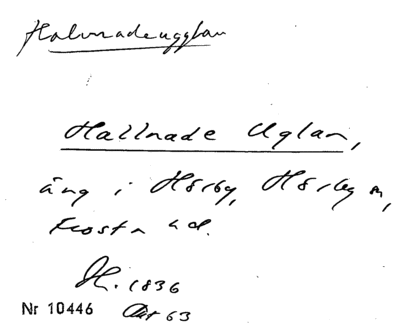 Halmadeugglan
Hallnade Uglan,
äng i Hörby, Hörby sn,
Frosta hd.
H. 1836
Nr 10446 Akt 63